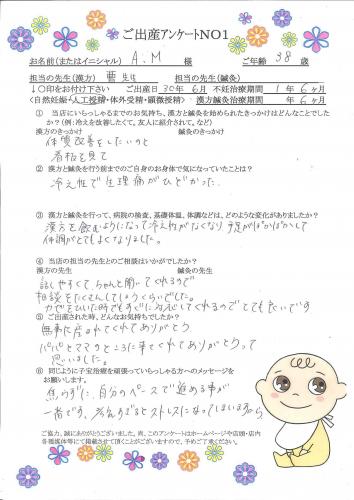 ご出産アンケートNO１
お名前(またはイニシャル) A.M 様 ご年齢 38 歳
担当の先生(漢方) 曹先生 担当の先生(鍼灸)
↓○印をお付け下さい ご出産日 30年 6月 不妊治療期間 1年 6ヶ月
＜自然妊娠・人工授精・体外受精・顕微授精＞ 漢方鍼灸治療期間 年 6ヶ月
① 当店にいらっしゃるまでのお気持ち、漢方や鍼灸を始められたきっかけはなんことでしたか？(例：冷えを改善したくて、友人に紹介されて、など)
漢方のきっかけ 鍼灸のきっかけ
体質改善をしたいのと
看板を見て
② 漢方や鍼灸を行う前までのご自身のお身体で気になっていたことは？
冷え性で生理痛がひどかった
③ 漢方と鍼灸を行って、病院の検査、基礎体温、体調などは、どのような変化がありましたか？
漢方を飲むようになって冷え性がなくなり手足がぽかぽかして
体調がとてもよくなりました。
④ 当店の担当の先生とのご相談はいかがでしたか？
漢方の先生 鍼灸の先生
話しやすくてちゃんと聞いてくれるので
相談をたくさんしてしまうくらいでした。
カゼをひいた時でもすぐに対応してくれるのでとても良いです
⑤ ご出産された時、どんなお気持ちでしたか？
無事に産まれてくれてありがとう
パパとママのところに来てくれてありがとうって
思いました。
⑥ 同じように子宝治療を頑張っていらっしゃる方へのメッセージを
お願いします。
焦らずに、自分のペースで進める事が
一番です。考えすぎるとストレスになってしまいますから。
ご協力、誠にありがとうございました。尚、このアンケートはホームページや店頭・店内
各種媒体等にて掲載させて頂くことがございますので、予めご了承ください。